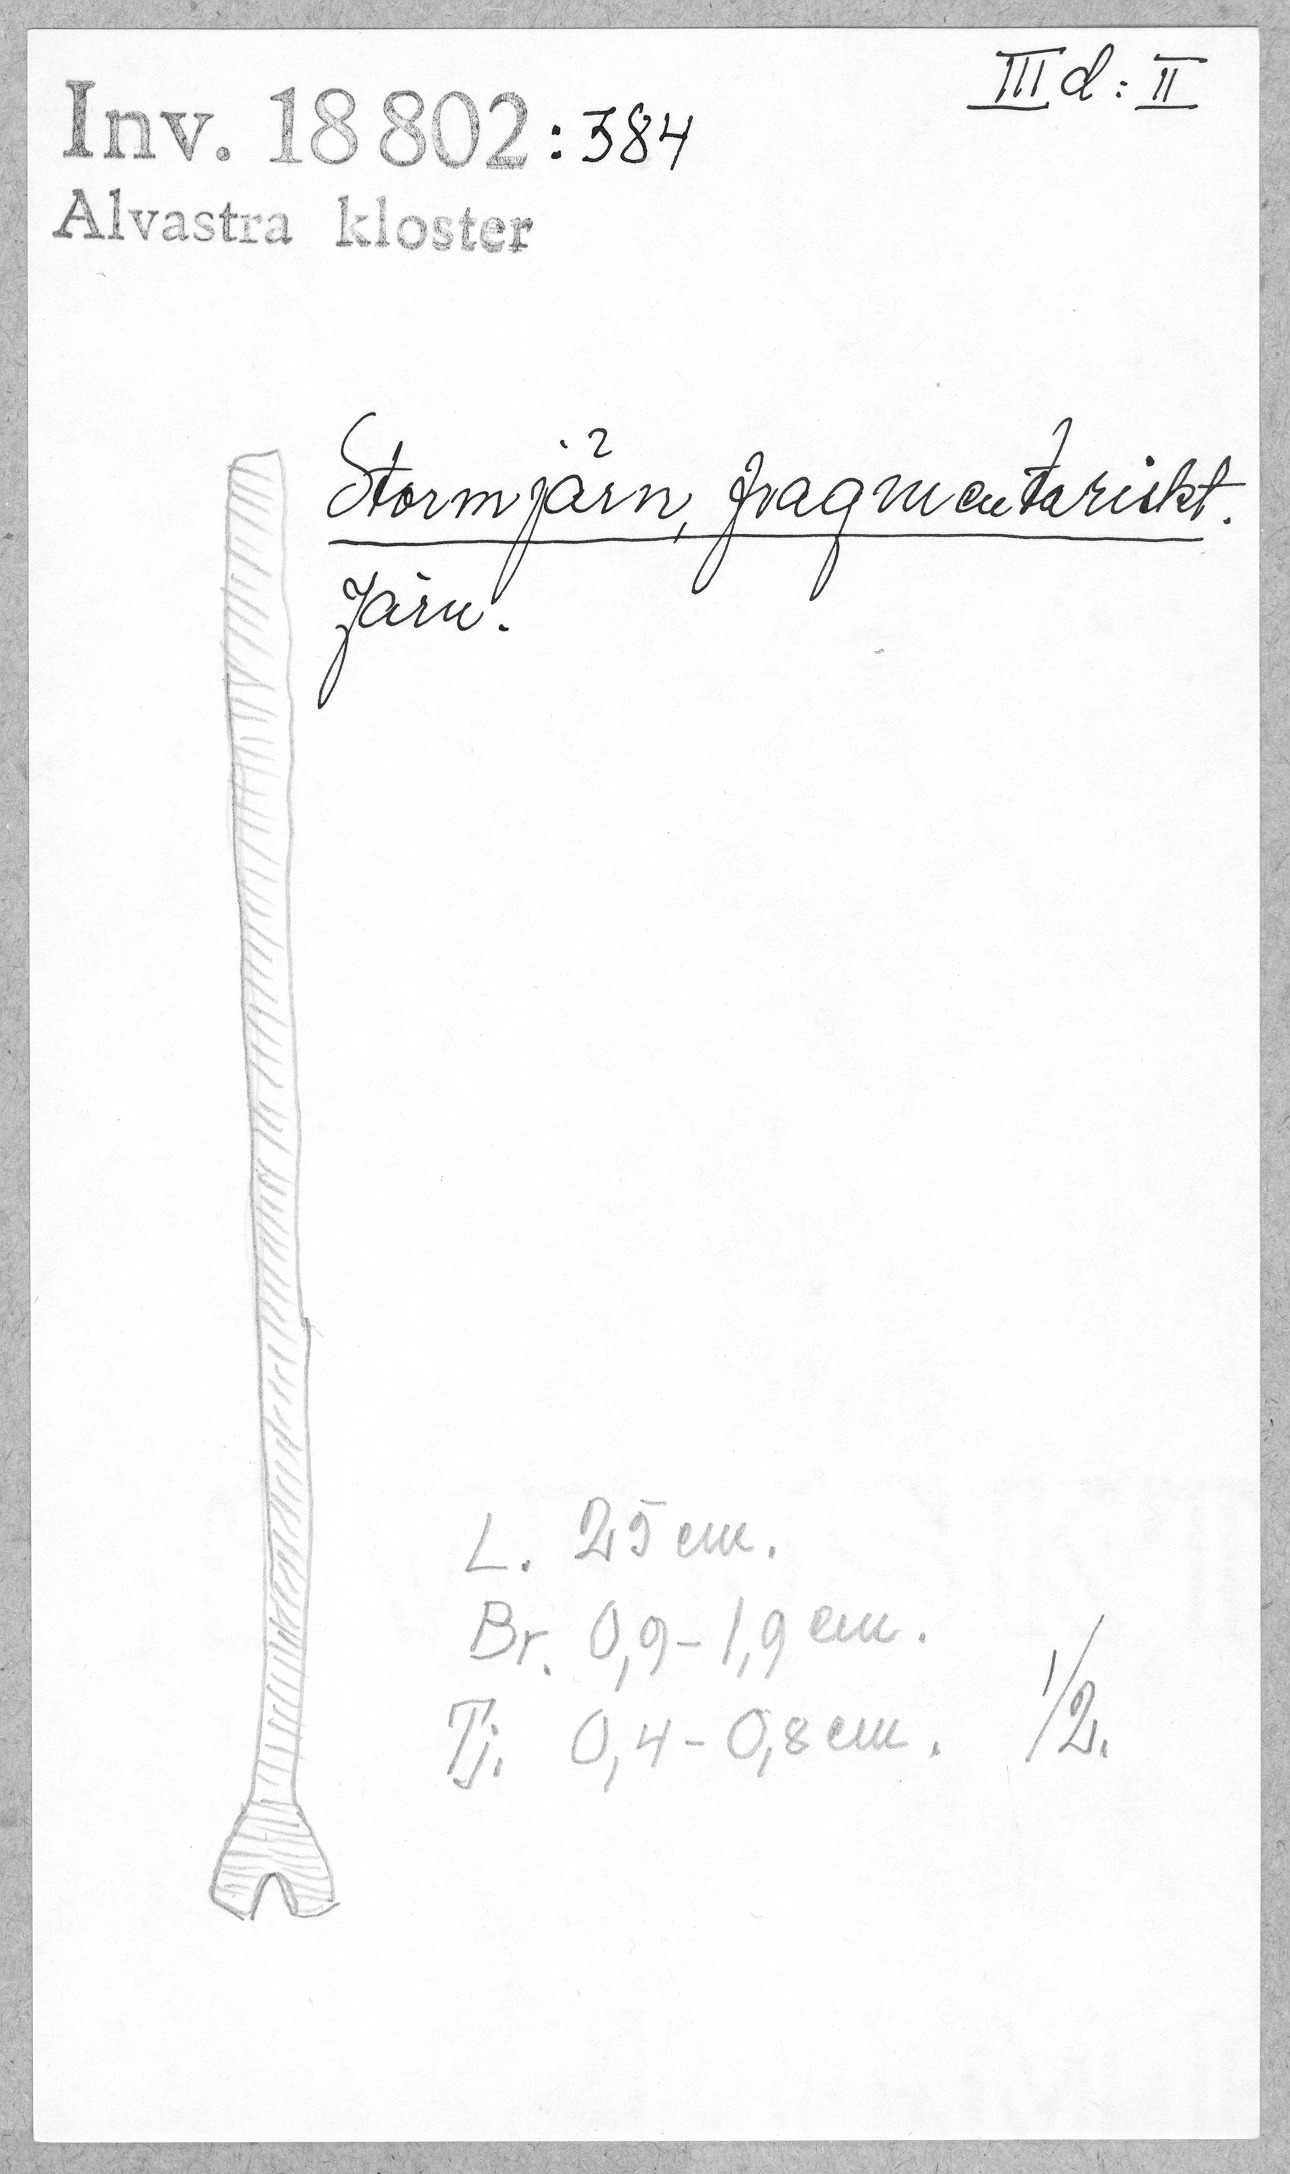 III d: II
Inv. 18 802:384
Alvastra kloster
Stormjärn, fragmentariskt.
Järn.
L. 25 cm.
Br. 0,9-1,9 cm.
Tj. 0,4-0,8 cm.
1/2.